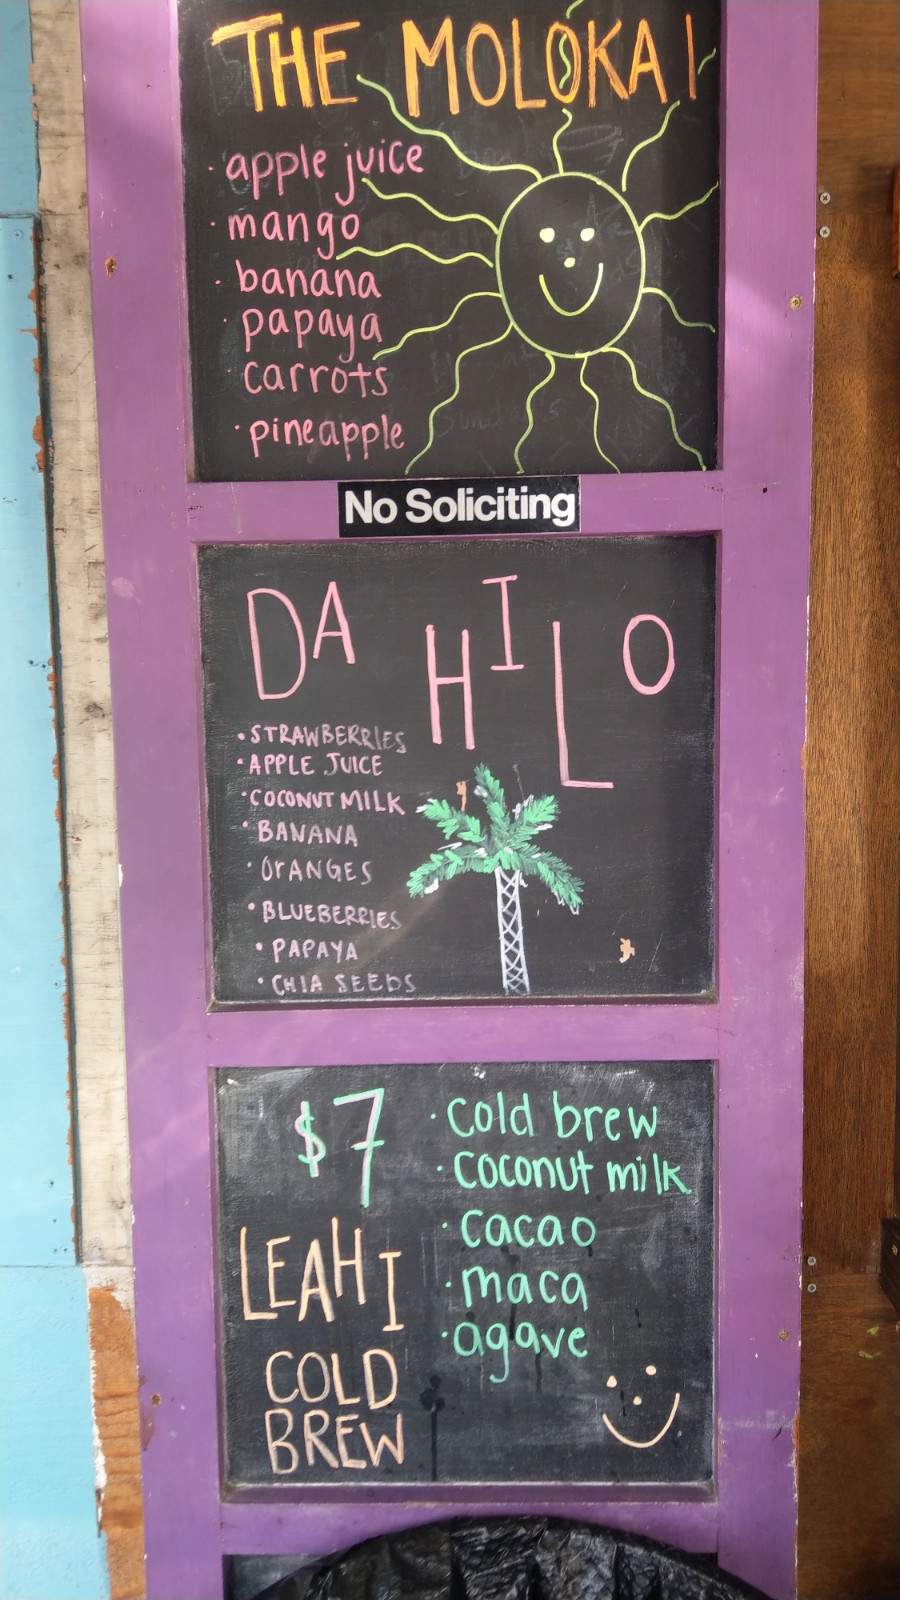 THE MOLOKAI
· apple juice
· mango
· banana
· papaya
· carrots
· pineapple
No Soliciting
DA HILO
• STRAWBERRIES
• APPLE JUICE
• COCONUT MILK
• BANANA
• OrANGES
• BLUEBERRIES
• PAPAYA
• CHIA SEEDS
$7
LEAHI
COLD
BREW
· cold brew
· coconut milk
· cacao
· maca
· agave